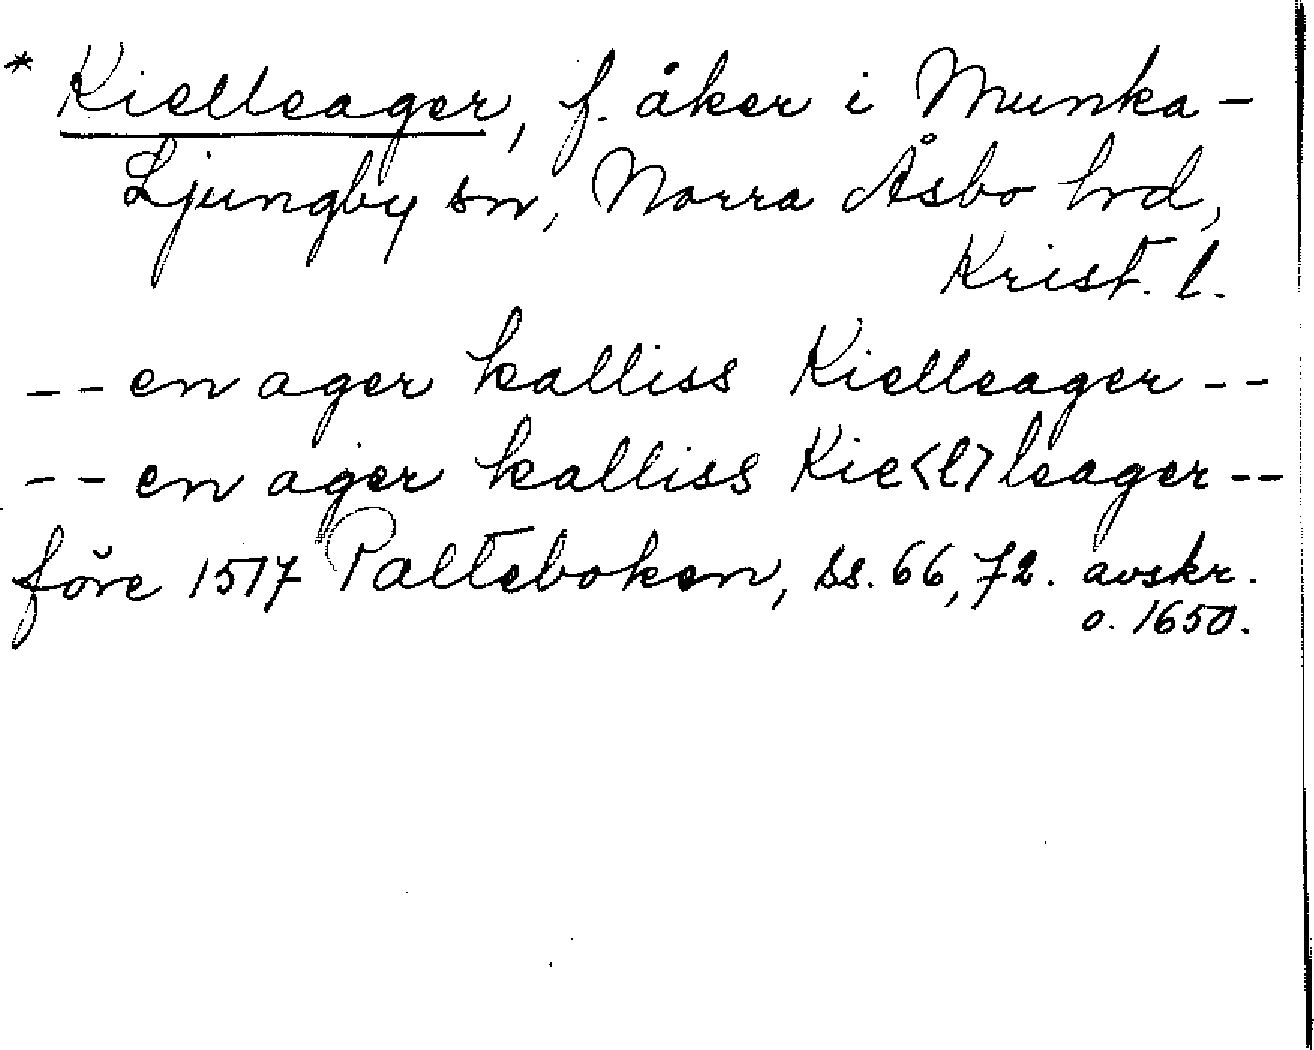 * Kielleager, f. åker i Munka-
Ljungby sn, Norra Åsbo hd,
Krist. l.
-- en ager kalliss Kielleager --
-- en ager kalliss Kie<l>leager --
före 1517 Palteboken, ss. 66, 72. avskr.
o. 1650.